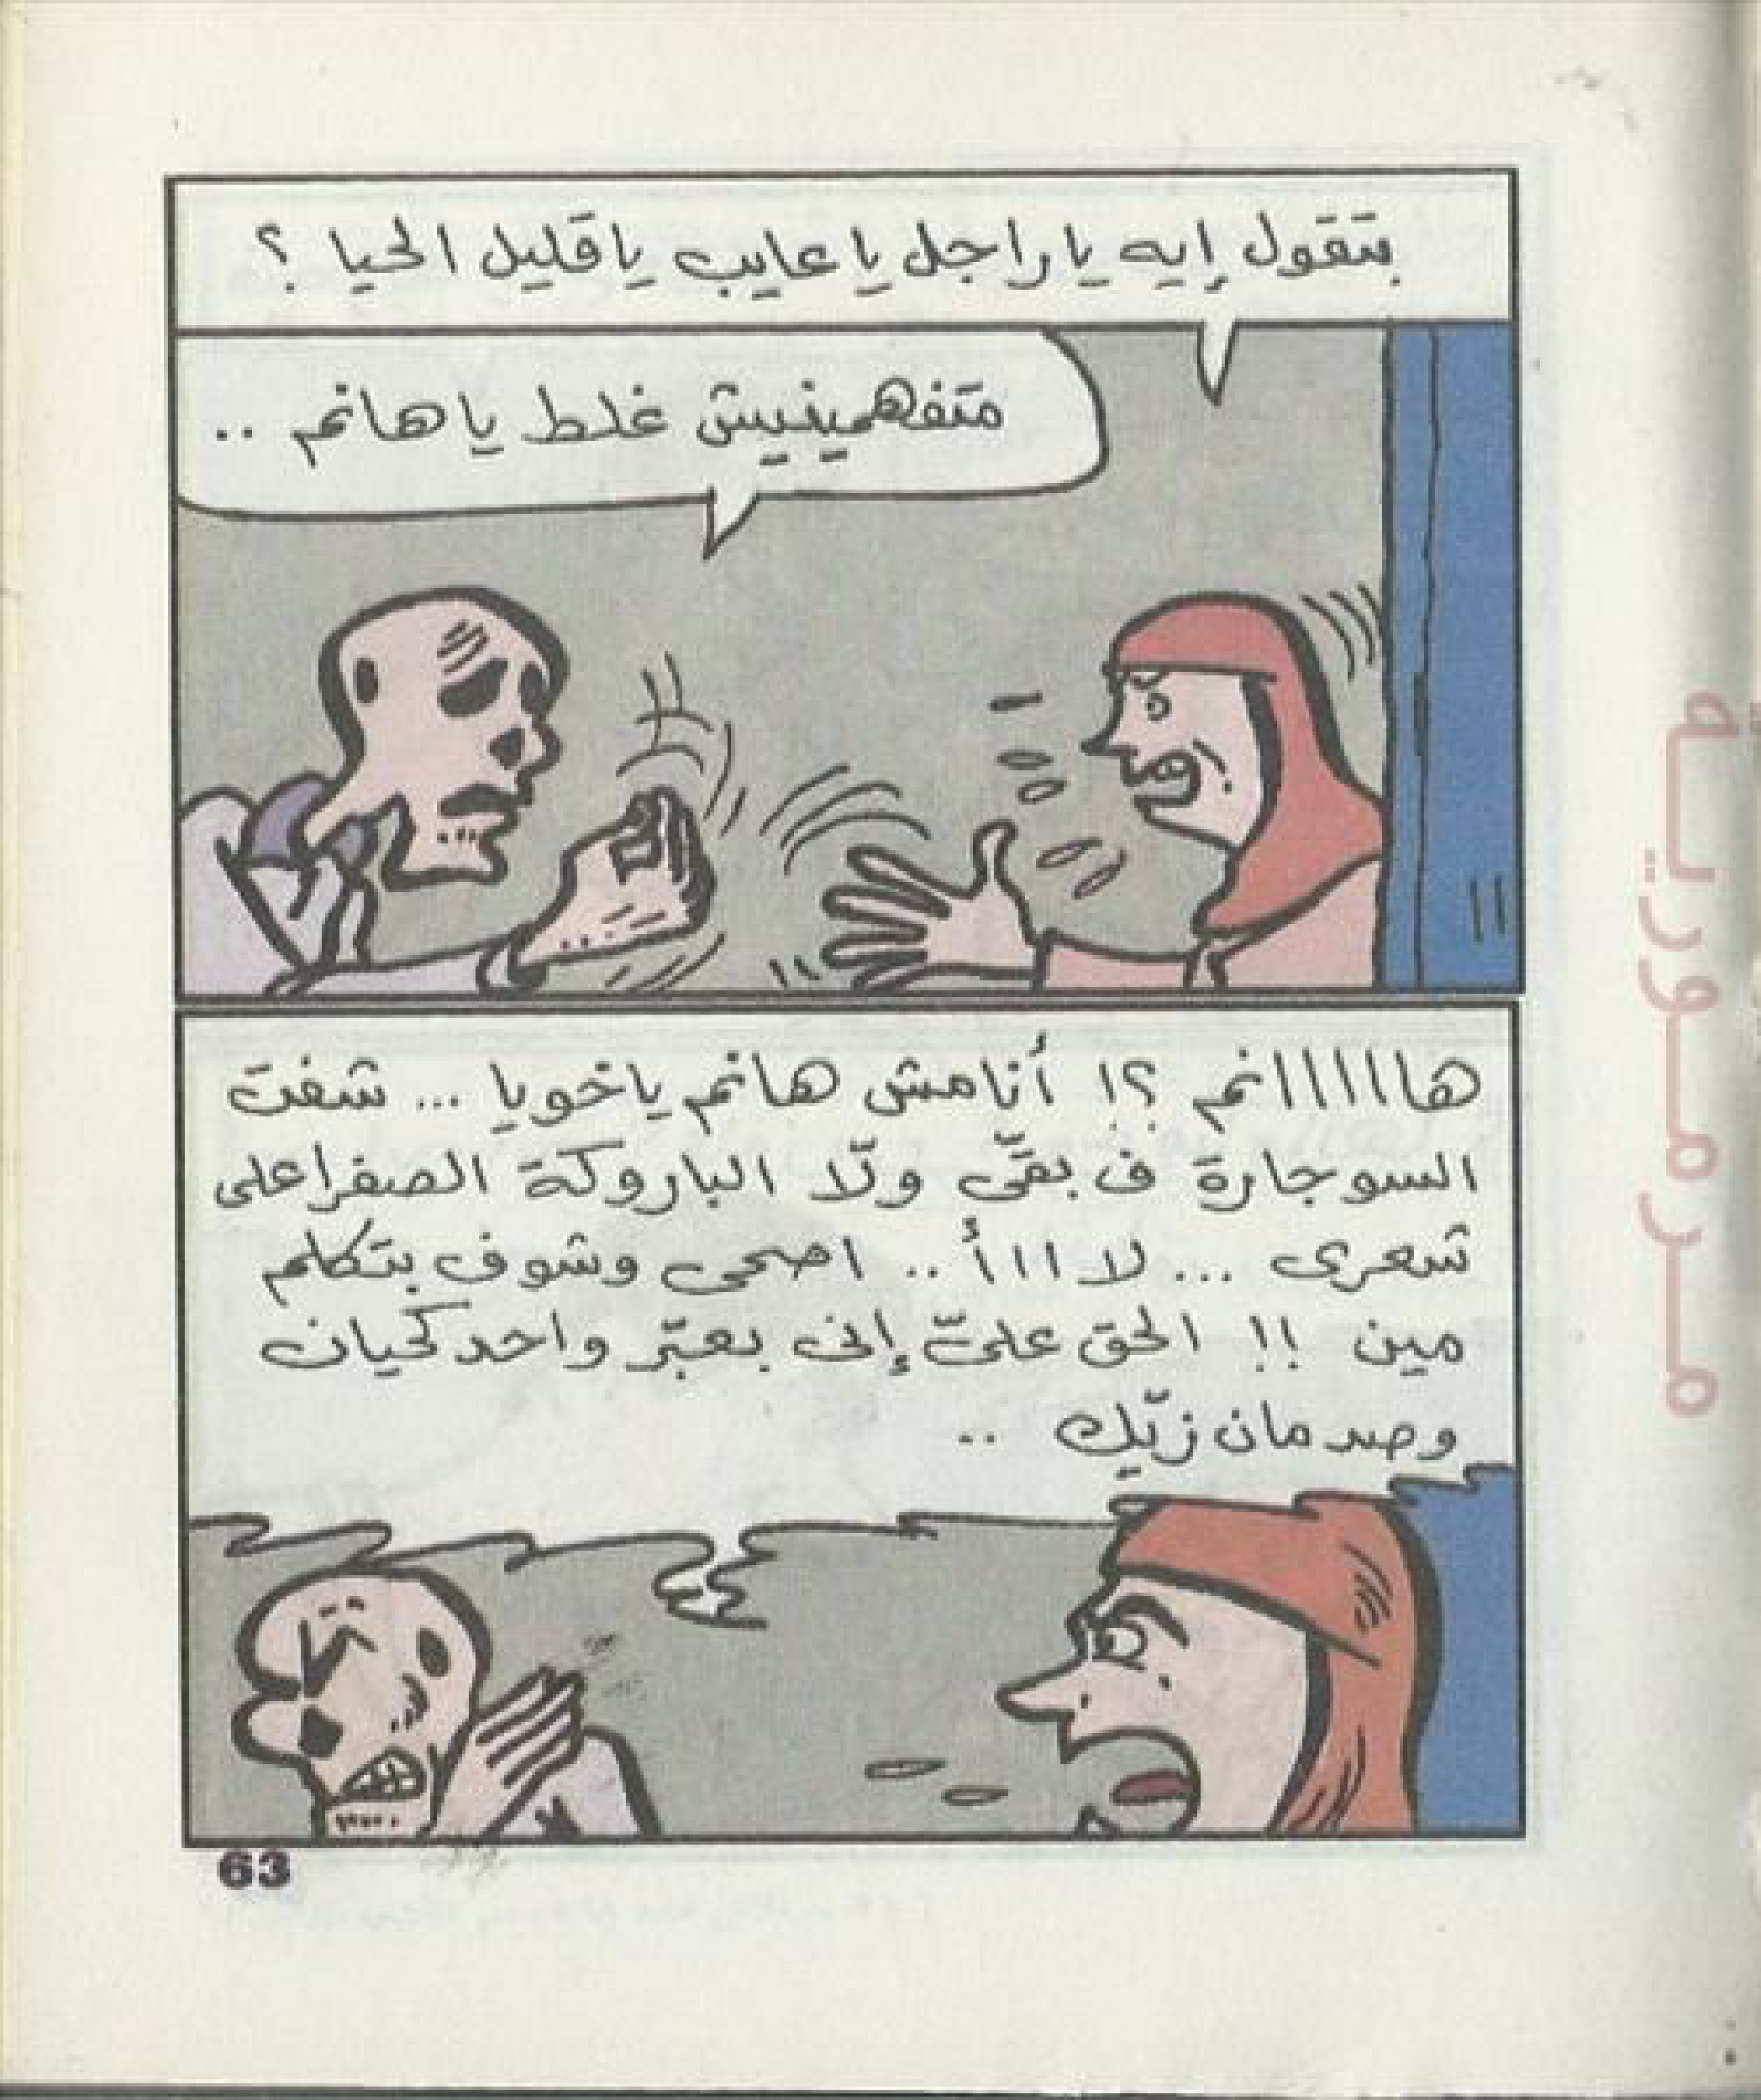 بتقول إيه يا راجل يا عايب يا قليل الحيا ؟
متفهمينيش غلط يا هانم ..
هاااااانم ؟! أنا مش هانم يا خويا ... شفت
السوجارة ف بقّى ولّا الباروكة الصفرا على
شعرى ... لااااأ .. اصحى وشوف بتكلم
مين !! الحق علىّ إنى بعبّر واحد كحيان
وصدمان زيّك ..
63